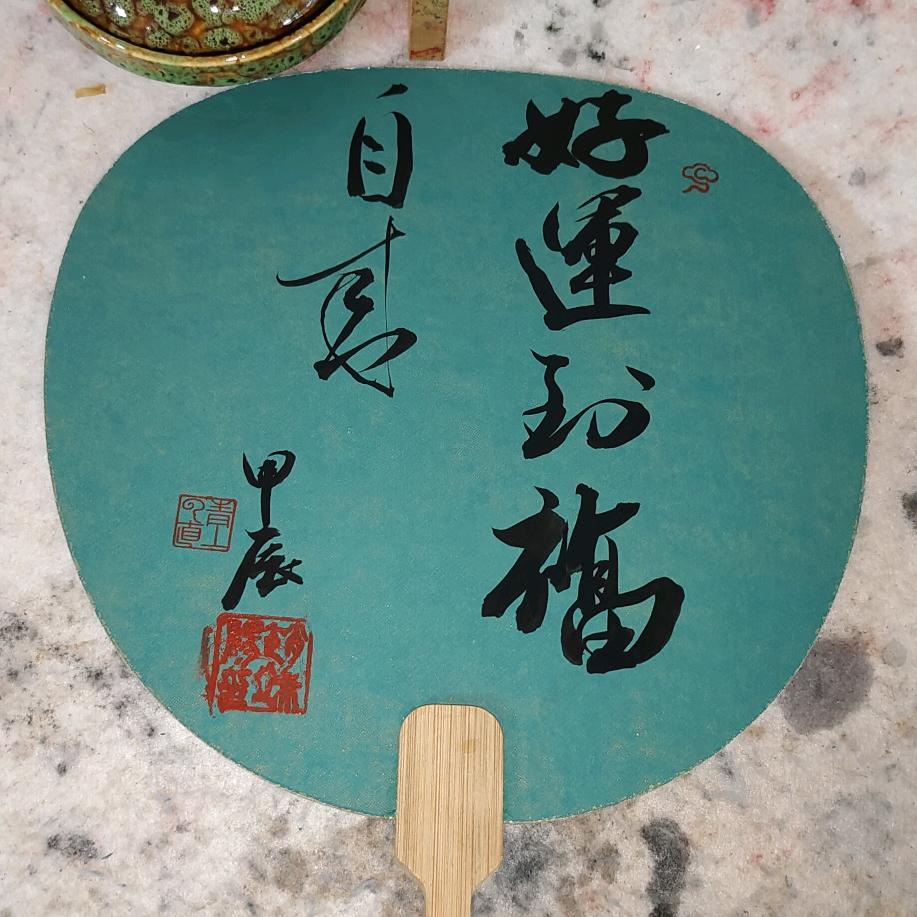 好運到福
自
甲辰